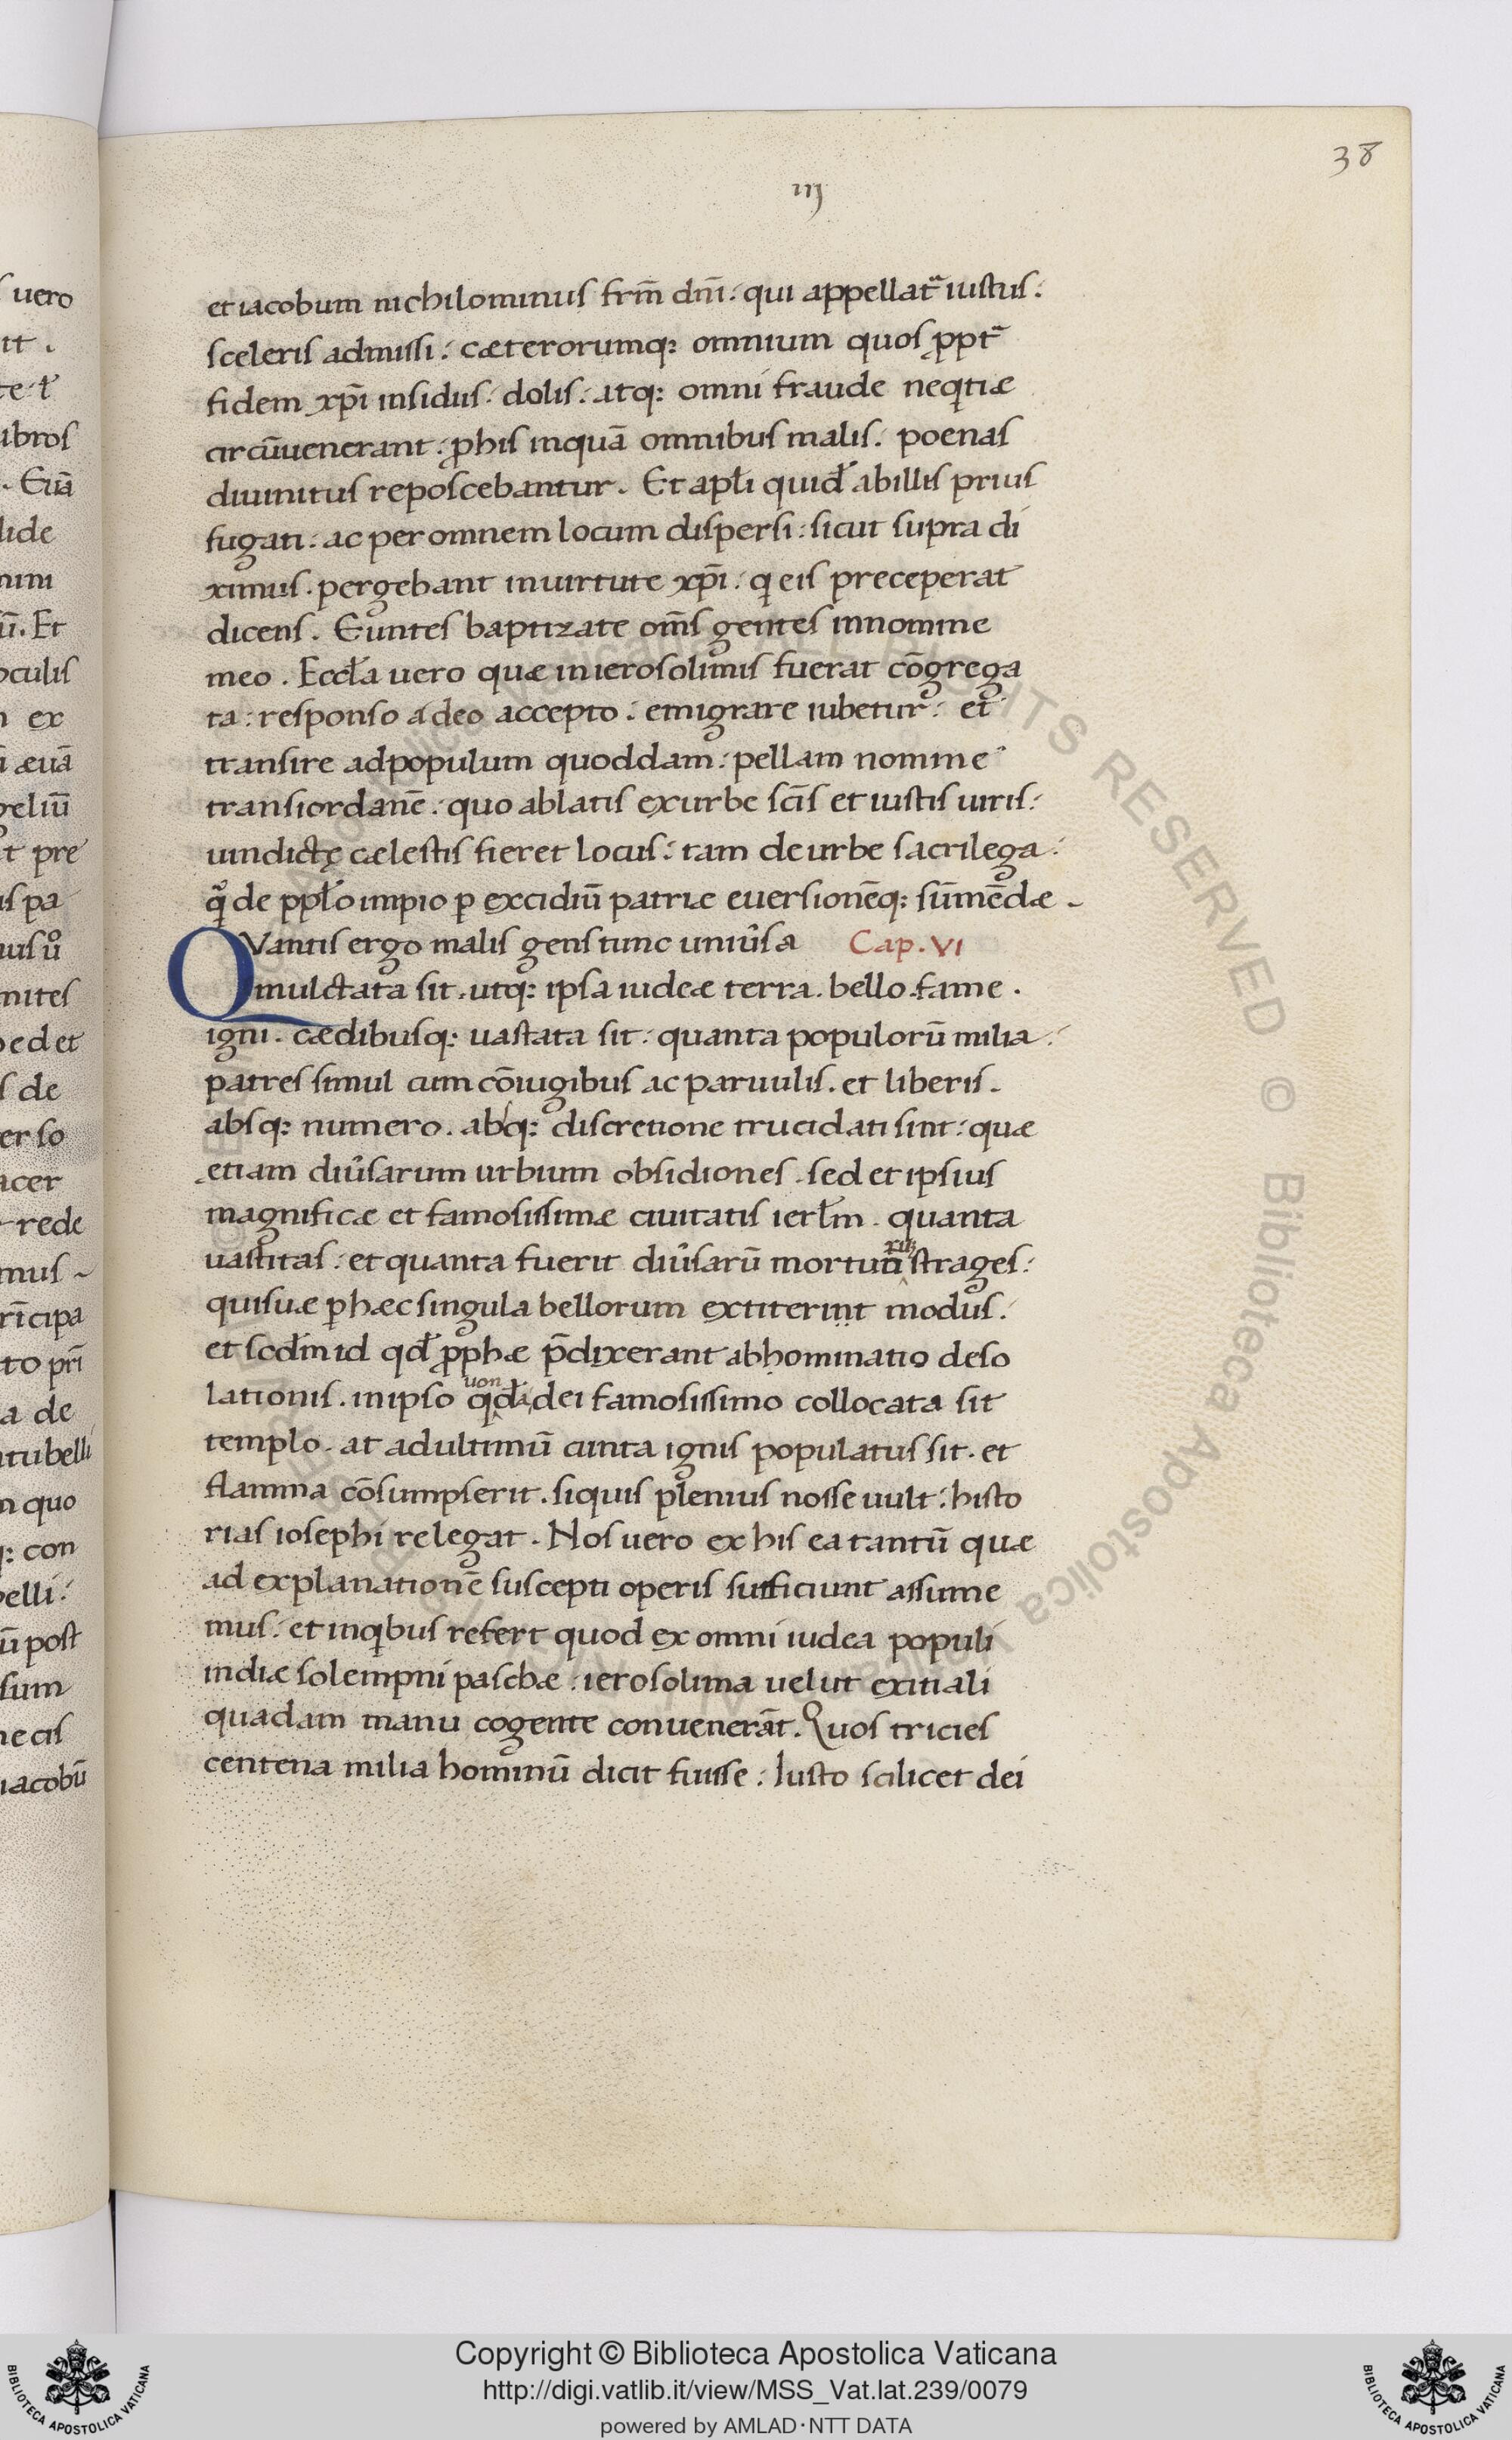 38
iij
et iacobum nichilominus frm̄ dn̄i. qui appellat᷑ iustus:
sceleris admissi: cæterorumq; omnium quos ꝓpt᷑
fidem xp̄i insidiis. dolis: atq; omni fraude neqͥtiæ
circūuenerant: ꝓ his inquā omnibus malis: poenas
diuinitus reposcebantur. Et apłi quidē ab illis prius
fugati: ac per omnem locum dispersi: sicut supra di
ximus. pergebant in uirtute xp̄i: qͥ eis preceperat
dicens. Euntes baptizate om̄s gentes in nomine
meo. Eccła uero quæ in ierosolimis fuerat cōgrega
ta: responso a deo accepto: emigrare iubetur: et
transire ad populum quoddam: pellam nomine
trans iordanē: quo ablatis ex urbe sc̄is et iustis uiris:
uindictę cælestis fieret locus: tam de urbe sacrilega:
qͣ de ppło impio p excidiū patriæ euersionēq; sūmēdæ.
QVantis ergo malis gens tunc uniu᷑sa Cap. VI
mulctata sit. utq; ipsa iudeæ terra. bello. fame.
igni. cædibusq; uastata sit: quanta populorū milia:
patres simul cum cōiugibus ac paruulis. et liberis.
absq; numero. absq; discretione trucidati sint: quæ
etiam diu᷑sarum urbium obsidiones. sed et ipsius
magnificæ et famosissimæ ciuitatis ierłm. quanta
uastitas: et quanta fuerit diu᷑sarū mortiū strages:
qui suæ p hæc singula bellorum extiterint modus:
et scd̄m id qd̄ ꝓphæ p̄dixerant abhominatio deso
lationis. in ipso qͦdā dei famosissimo collocata sit
uon
templo. at ad ultimū cunta ignis populatus sit. et
flamma cōsumpserit. siquis plenius nosse uult: histo
rias iosephi relegat. Nos uero ex his ea tantū quæ
ad explanationē suscepti operis sufficiunt assume
mus: et in qͥbus refert quod ex omni iudea populi
in diæ solempni paschæ: ierosolima uelut exitiali
quadam manu cogente conuenerāt. Quos tricies
centena milia hominū dicit fuisse: Iusto scilicet dei
s uero
it.
ibros
. Euā
lide
nim
ū. Et
oculis
n ex
i æuā
geliū
t pre
is pa
mites
oed et
s de
er so
acer
rede
mus
rīcipa
to pri
a de
tu belli
n quo
q; con
elli:
ū post
sum
nec is
iacobū
© Biblioteca Apostolica Vaticana ALL RIGHTS RESERVED
Copyright © Biblioteca Apostolica Vaticana
http://digi.vatlib.it/view/MSS_Vat.lat.239/0079
powered by AMLAD·NTT DATA
BIBLIOTECA APOSTOLICA VATICANA
BIBLIOTECA APOSTOLICA VATICANA